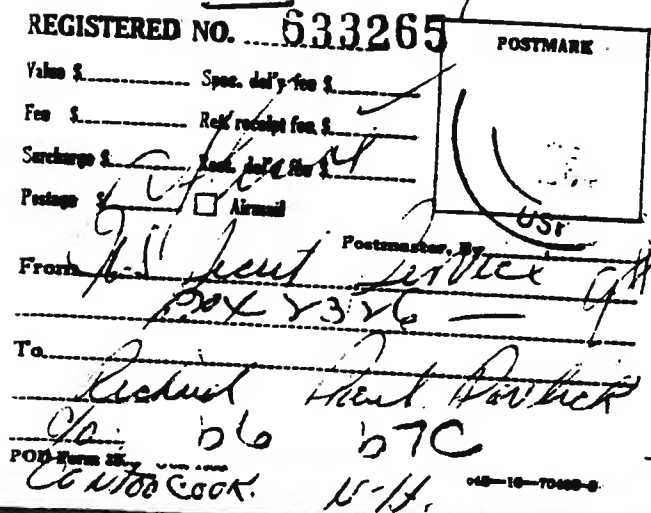 REGISTERED NO. 633265
POSTMARK
Value $ Spec. del'y fee $
Fee $ Ret. receipt fee $
Surcharge $ Rest. del'y fee $
Postage $ ☐ Airmail
USP
Postmaster, By
From U.S. Secret Service
Box 2326
To
Richard Paul Pavlick
c/o b6 b7C
POD Form
Contoocook. N-H.